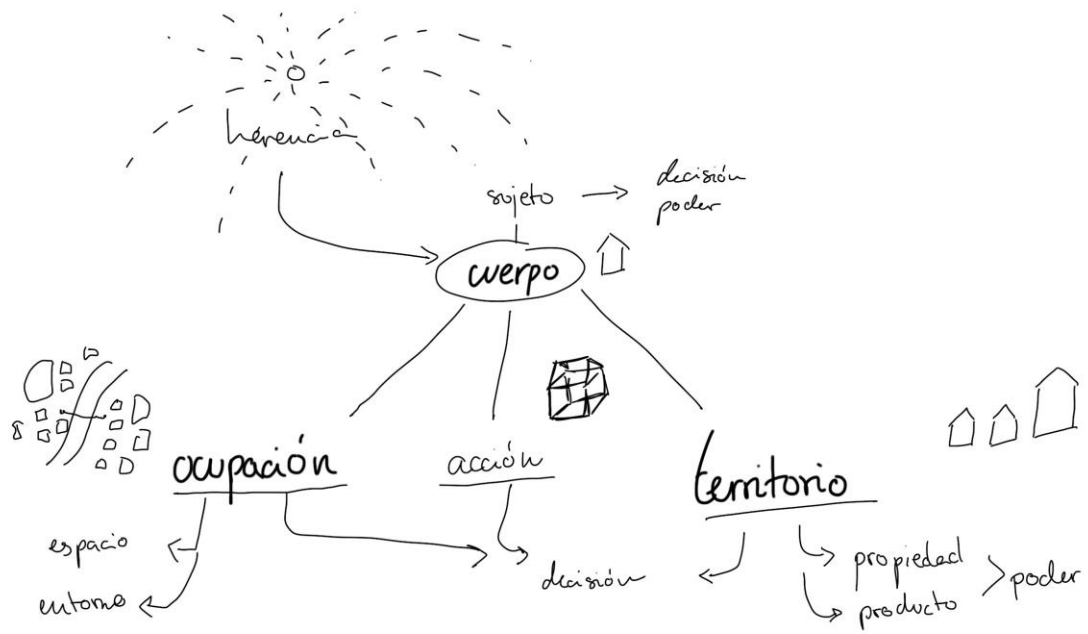 herencia
sujeto
decisión
poder
cuerpo
ocupación
acción
territorio
espacio
entorno
decisión
propiedad
producto
poder